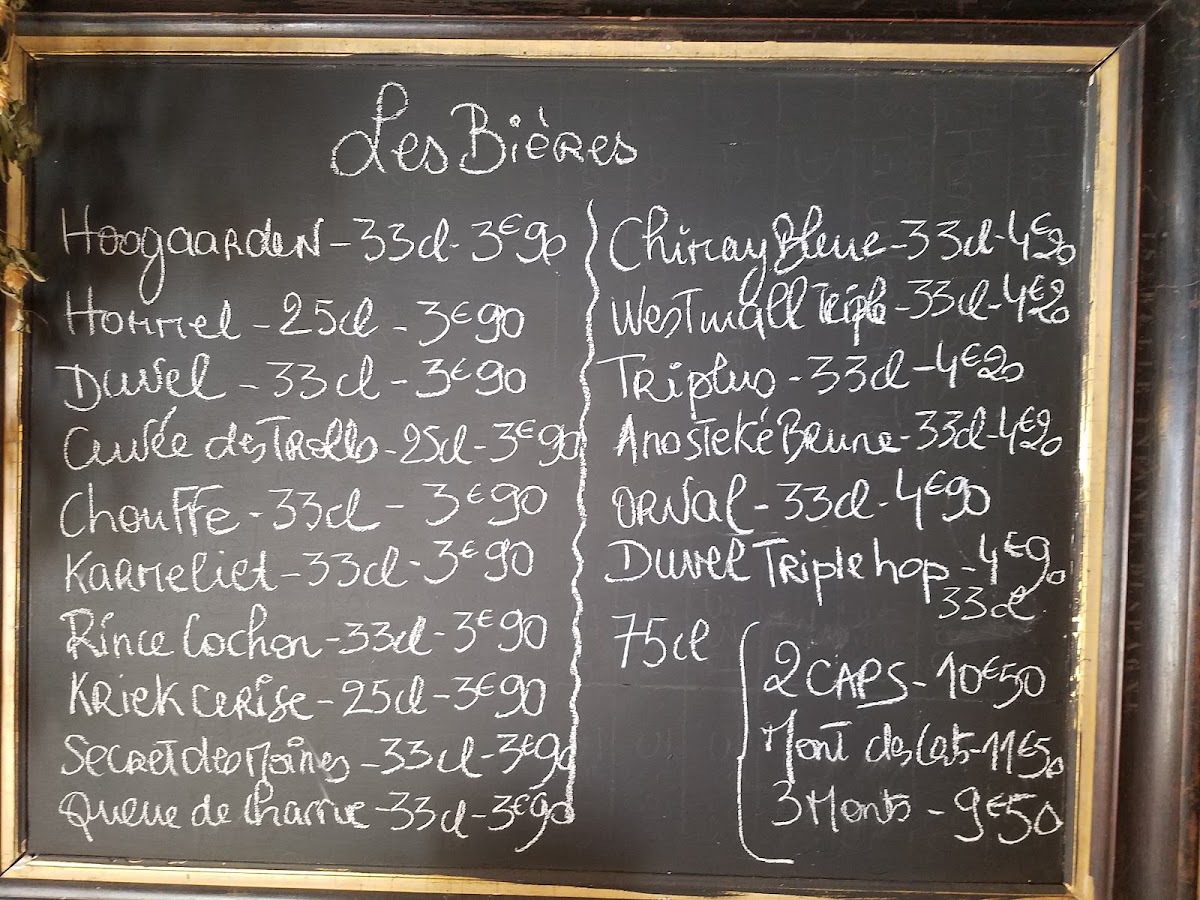 Les Bières
Hoogaarden - 33cl - 3€90
Hommel - 25cl - 3€90
Duvel - 33cl - 3€90
Cuvée des Trolls - 25cl - 3€90
Chouffe - 33cl - 3€90
Karmeliet - 33cl - 3€90
Rince Cochon - 33cl - 3€90
Kriek cerise - 25cl - 3€90
Secret des Moines - 33cl - 3€90
Queue de charrue - 33cl - 3€90
Chimay Bleue - 33cl - 4€20
Westmall triple - 33cl - 4€20
Triplus - 33cl - 4€20
Anosteké Brune - 33cl - 4€20
Orval - 33cl - 4€90
Duvel Triple hop - 4€90
33cl
75cl
2 CAPS - 10€50
Mont des Cats - 11€50
3 Monts - 9€50